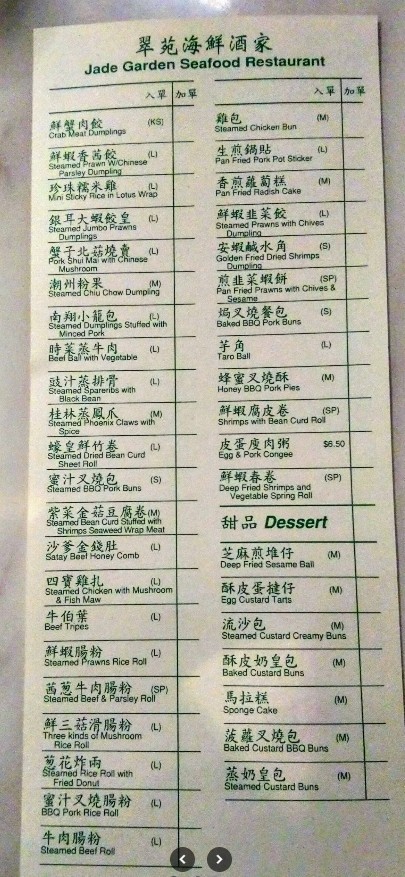 翠苑海鮮酒家
Jade Garden Seafood Restaurant
入單 加單
鮮蟹肉餃 (KS)
Crab Meat Dumplings
鮮蝦香茜餃 (L)
Steamed Prawn W/Chinese
Parsley Dumpling
珍珠糯米雞 (L)
Mini Sticky Rice in Lotus Wrap
銀耳大蝦餃皇 (L)
Steamed Jumbo Prawns
Dumplings
蟹子北菇燒賣 (L)
Pork Shui Mai with Chinese
Mushroom
潮州粉果 (M)
Steamed Chiu Chow Dumpling
南翔小籠包 (L)
Steamed Dumplings Stuffed with
Minced Pork
時菜蒸牛肉 (L)
Beef Ball with Vegetable
豉汁蒸排骨 (L)
Steamed Spareribs with
Black Bean
桂林蒸鳳爪 (M)
Steamed Phoenix Claws with
Spice
蠔皇鮮竹卷 (L)
Steamed Dried Bean Curd
Sheet Roll
蜜汁叉燒包 (S)
Steamed BBQ Pork Buns
紫菜金菇豆腐卷(M)
Steamed Bean Curd Stuffed with
Shrimps Seaweed Wrap Meat
沙爹金錢肚 (L)
Satay Beef Honey Comb
四寶雞扎 (L)
Steamed Chicken with Mushroom
& Fish Maw
牛伯葉 (L)
Beef Tripes
鮮蝦腸粉 (L)
Steamed Prawns Rice Roll
茜蔥牛肉腸粉 (SP)
Steamed Beef & Parsley Roll
鮮三菇滑腸粉 (L)
Three kinds of Mushroom
Rice Roll
蔥花炸兩 (L)
Steamed Rice Roll with
Fried Donut
蜜汁叉燒腸粉 (L)
BBQ Pork Rice Roll
牛肉腸粉 (L)
Steamed Beef Roll
入單 加單
雞包 (M)
Steamed Chicken Bun
生煎鍋貼 (L)
Pan Fried Pork Pot Sticker
香煎蘿蔔糕 (M)
Pan Fried Radish Cake
鮮蝦韭菜餃 (L)
Steamed Prawns with Chives
Dumpling
安蝦鹹水角 (S)
Golden Fried Dried Shrimps
Dumpling
煎韭菜蝦餅 (SP)
Pan Fried Prawns with Chives &
Sesame
焗叉燒餐包 (S)
Baked BBQ Pork Buns
芋角 (L)
Taro Ball
蜂蜜叉燒酥 (M)
Honey BBQ Pork Pies
鮮蝦腐皮卷 (SP)
Shrimps with Bean Curd Roll
皮蛋瘦肉粥 $6.50
Egg & Pork Congee
鮮蝦春卷 (SP)
Deep Fried Shrimps and
Vegetable Spring Roll
甜品 Dessert
芝麻煎堆仔 (M)
Deep Fried Sesame Ball
酥皮蛋撻仔 (M)
Egg Custard Tarts
流沙包 (M)
Steamed Custard Creamy Buns
酥皮奶皇包 (M)
Baked Custard Buns
馬拉糕 (M)
Sponge Cake
菠蘿叉燒包 (M)
Baked Custard BBQ Buns
蒸奶皇包 (M)
Steamed Custard Buns